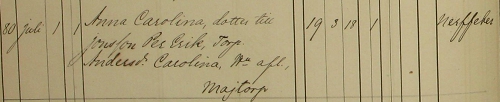 30 juli 1 1 Anna Carolina, dotter till 19 3 18 1 Nerffeber
Jonsson Per Erik, Torp.
Andersd. Carolina, Hu afl.,
Majtorp